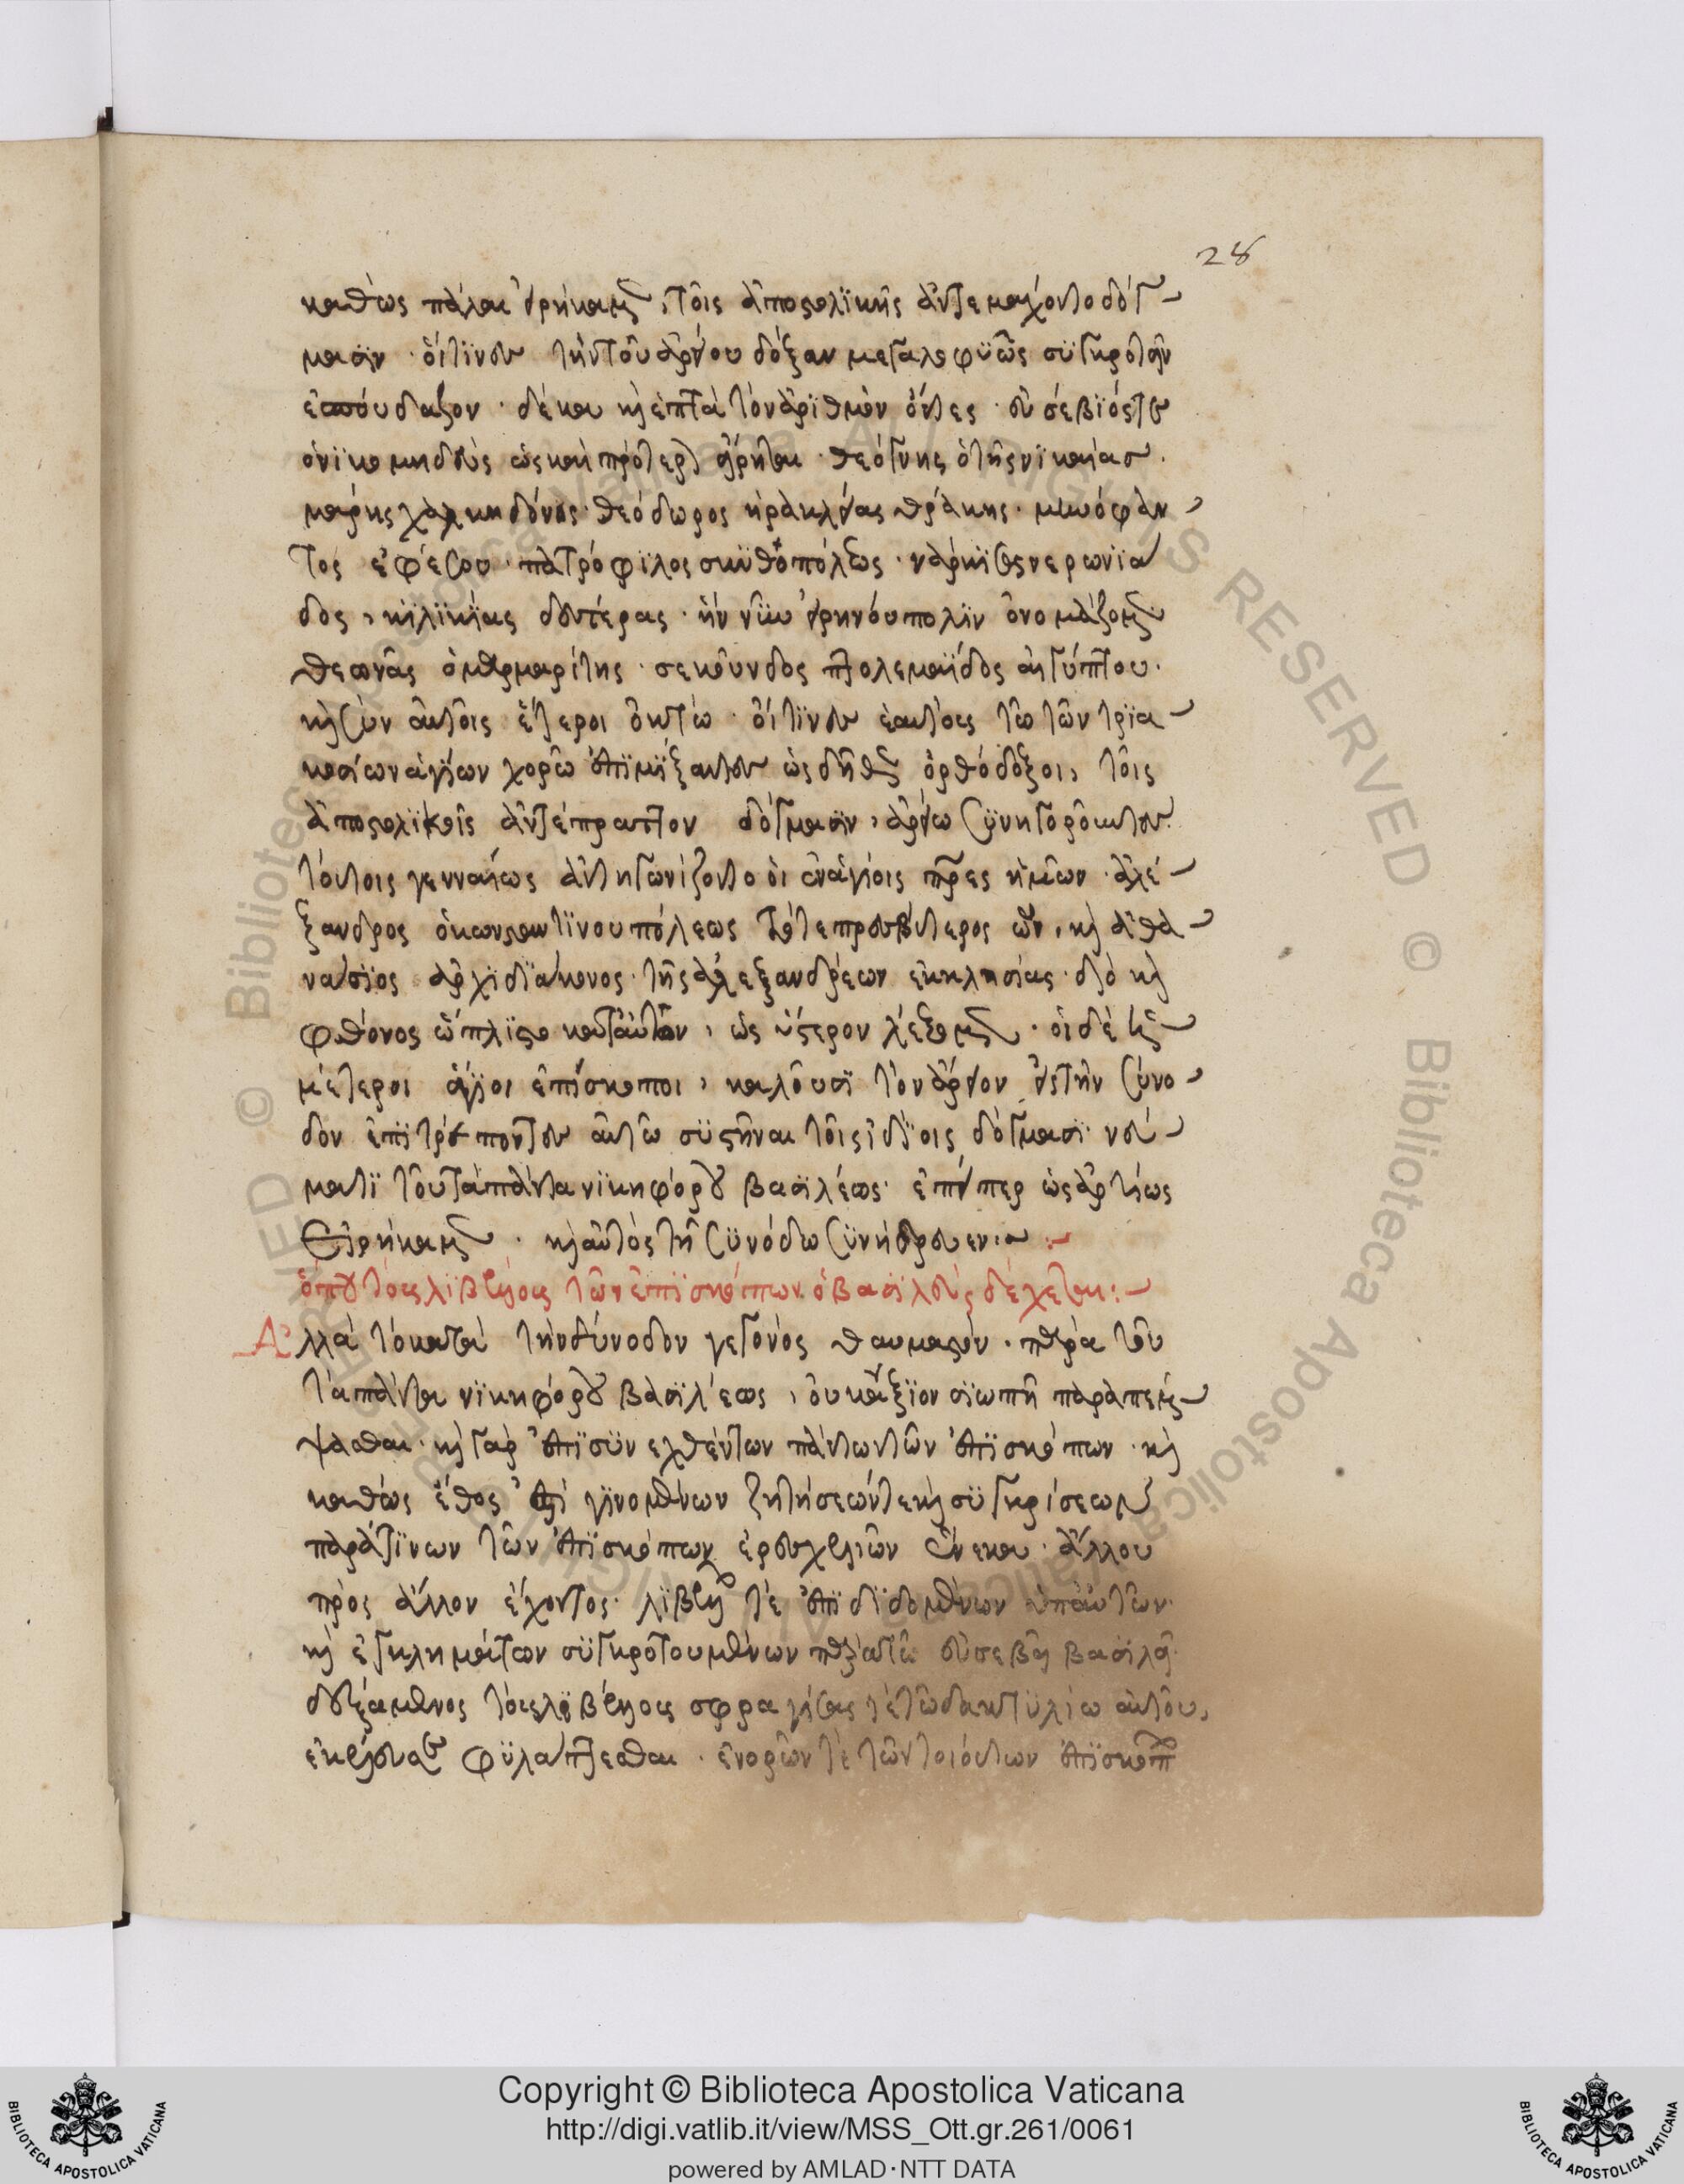 28
καθὼς πάλαι εἰρήκαμεν, τοῖς ἀποστολικῆς ἀντεμάχοντο δόγ
μασϊν· οἵτϊνες τὴν τοῦ ἀρείου δόξαν μεγαλοφϋῶς σϋγκροτεῖν
ἐσπούδαζον· δέκα καὶ ἑπτὰ τὸν ἀρϊθμὸν ὄντες· εὐσέβϊός τε
ὁ νϊκομηδεὺς ὡς καὶ πρότερον εἴρηται· θεόγνης ὁ τῆς νϊκαίας·
μάρης χαλκηδόνος· θεόδωρος ἡρακλείας θράκης· μηνόφαν
τος ἐφέσου· πατρόφϊλος σκϋθοπόλεως· νάρκϊσος νερωνϊά
δος, κϊλϊκίας δευτέρας· ἣν νῦν εἰρηνούπολϊν ὀνομάζομεν
θεωνᾶς ὁ μαρμαρίτης· σεκοῦνδος πτολεμαΐδος αἰγύπτου·
καὶ σὺν αὐτοῖς ἕτεροι ὀκτὼ· οἵτϊνες ἑαυτοὺς τῶ τῶν τρϊα
κοσίων ἁγίων χορῶ ἐπϊμΐξαντες ὡς δῆθεν ὀρθόδοξοι, τοῖς
ἀποστολϊκοῖς ἀντέπραττον δόγμασϊν, ἀρείω σϋνηγοροῦντες
τούτοις γενναίως ἀντηγωνίζοντο οἱ ἐν ἁγίοις πρες ἡμῶν· ἀλέ
ξανδρος ὁ κωνσταντϊνουπόλεως τότε πρεσβύτερος ὢν, καὶ ἀθα
νάσϊος ἀρχϊδϊάκονος· τῆς ἀλεξανδρέων ἐκκλησίας· διὸ καὶ
φθόνος ὥπλϊστο κατ' αὐτῶν, ὡς ὕστερον λέξομεν· οἱ δὲ ἡ
μέτεροι ἅγϊοι ἐπίσκοποι, καλοῦσϊ τὸν ἄρειον εἰς τὴν σύνο
δον ἐπϊτρέποντες αὐτῶ σϋστῆναι τοῖς ϊδΐοις δόγμασϊ· νεύ
ματϊ τοῦ τὰ πάντα νϊκηφόρου βασϊλέως· ἐπείπερ ὡς ἀρτίως
εἰρήκαμεν· καὶ αὐτὸς τῆ σϋνόδω σϋνήδρευεν :~
ὅπου τοὺς λϊβέλλους τῶν ἐπϊσκόπων ὁ βασϊλεὺς δέχεται :~
Ἀλλὰ τὸ κατὰ τὴν σύνοδον γεγονὸς θαυμαστὸν· παρὰ τοῦ
τὰ πάντα νϊκηφόρου βασϊλέως, οὐκ ἄξϊον σϊωπῆ παραπέμ
ψασθαι· καὶ γὰρ ἐπϊσϋνελθέντων πάντων τῶν ἐπϊσκόπων· καὶ
καθὼς ἔθος ἐπὶ γϊνομένων ζητήσεών τε καὶ σϋγκρίσεων
παρά τϊνων τῶν ἐπϊσκόπων ἐρεσχελιῶν ἕνεκα· ἄλλου
πρὸς ἄλλον ἔχοντος· λϊβέλλων τὲ ἐπϊδϊδομένων ὑπ' αὐτῶν·
καὶ ἐγκλημάτων σϋγκροτουμένων παρὰ τῶ εὐσεβεῖ βασϊλεῖ·
δεξάμενος τοὺς λϊβέλλους σφραγίσας τὲ τῶ δακτϋλίω αὐτοῦ,
ἐκέλευσε φϋλάττεσθαι· ἐνορῶν τὲ τῶν τοιούτων ἐπϊσκόπων
Copyright © Biblioteca Apostolica Vaticana
http://digi.vatlib.it/view/MSS_Ott.gr.261/0061
powered by AMLAD·NTT DATA
BIBLIOTECA APOSTOLICA VATICANA
BIBLIOTECA APOSTOLICA VATICANA